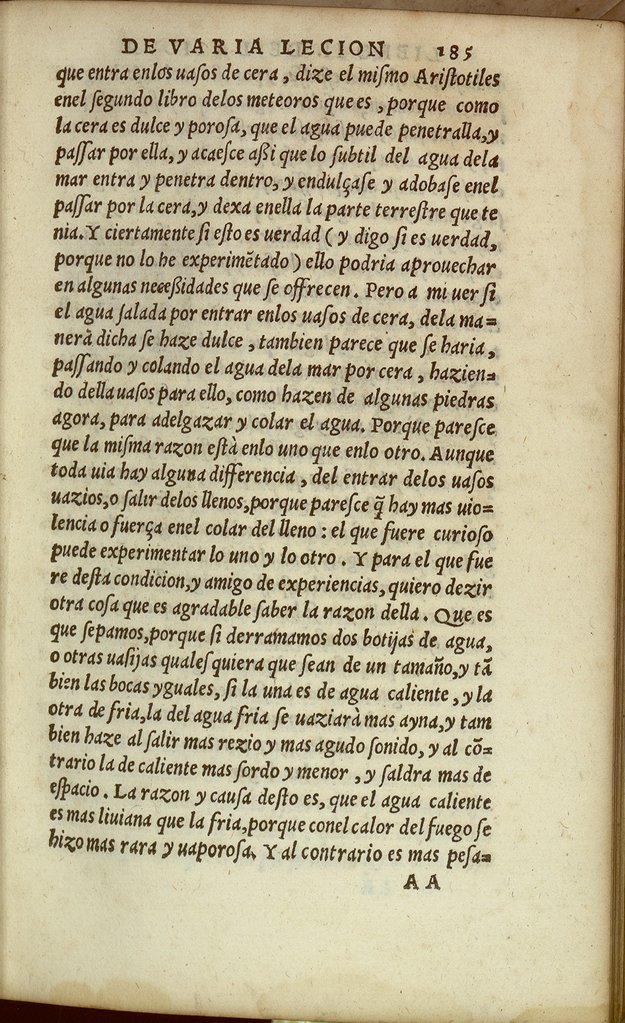 DE VARIA LECION 185
que entra enlos uaſos de cera, dize el miſmo Ariſtotiles
enel ſegundo libro delos meteoros que es, porque como
la cera es dulce y poroſa, que el agua puede penetralla, y
paſſar por ella, y acaeſce aßi que lo ſubtil del agua dela
mar entra y penetra dentro, y endulçaſe y adobaſe enel
paſſar por la cera, y dexa enella la parte terreſtre que te
nia. Y ciertamente ſi eſto es uerdad (y digo ſi es uerdad,
porque no lo he experimẽtado) ello podria aprouechar
en algunas neceßidades que ſe offrecen. Pero a mi uer ſi
el agua ſalada por entrar enlos uaſos de cera, dela ma=
nerà dicha ſe haze dulce, tambien parece que ſe haria,
paſſando y colando el agua dela mar por cera, hazien=
do della uaſos para ello, como hazen de algunas piedras
agora, para adelgazar y colar el agua. Porque pareſce
que la miſma razon eſtà enlo uno que enlo otro. Aunque
toda uia hay alguna differencia, del entrar delos uaſos
uazios, o ſalir delos llenos, porque pareſce q̃ hay mas uio=
lencia o fuerça enel colar del lleno: el que fuere curioſo
puede experimentar lo uno y lo otro. Y para el que fue
re deſta condicion, y amigo de experiencias, quiero dezir
otra coſa que es agradable ſaber la razon della. Que es
que ſepamos, porque ſi derramamos dos botijas de agua,
o otras uaſijas qualeſquiera que ſean de un tamaño, y tã
bien las bocas yguales, ſi la una es de agua caliente, y la
otra de fria, la del agua fria ſe uaziarà mas ayna, y tam
bien haze al ſalir mas rezio y mas agudo ſonido, y al cõ=
trario la de caliente mas ſordo y menor, y ſaldra mas de
eſpacio. La razon y cauſa deſto es, que el agua caliente
es mas liuiana que la fria, porque conel calor del fuego ſe
hizo mas rara y uaporoſa. Y al contrario es mas peſa=
AA